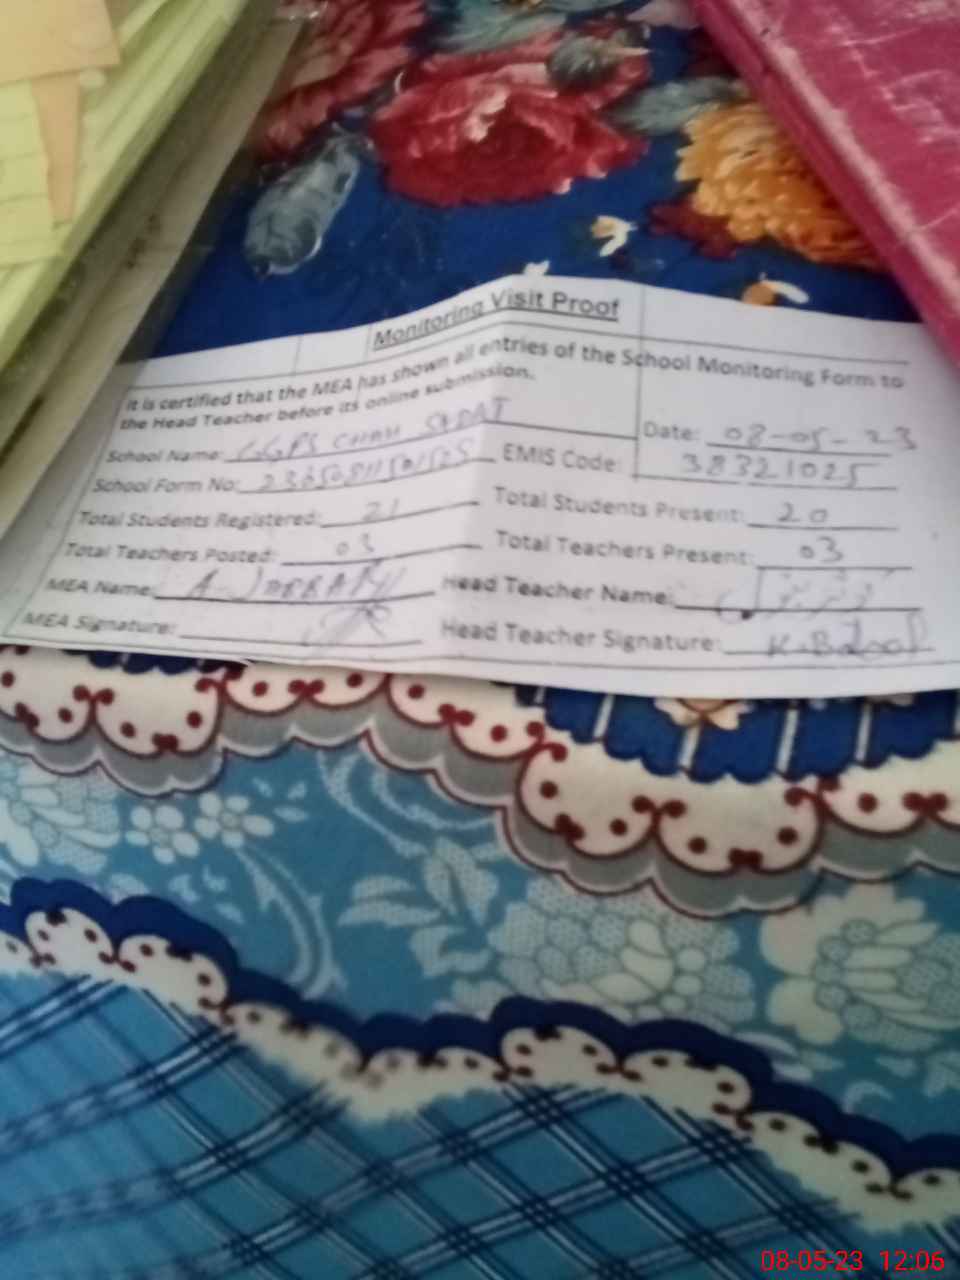 Monitoring Visit Proof
It is certified that the MEA has shown all entries of the School Monitoring Form to
the Head Teacher before its online submission.
Date: 08-05-23
School Name: GGPS CHAH SADAT
EMIS Code: 38321025
School Form No:
Total Students Registered: 21
Total Students Present: 20
Total Teachers Posted: 03
Total Teachers Present: 03
MEA Name: A. JABBAR
Head Teacher Name:
MEA Signature:
Head Teacher Signature: K. Batool
08-05-23 12:06